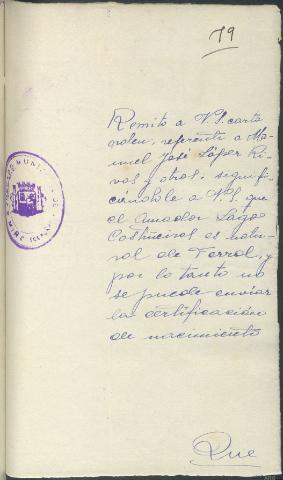 79
Remito a V.S. carta
orden, referente a Ma-
nuel José López Ri-
vas y otros, signifi-
cándole a V.S. que
el Amador Lago
Castiñeiras es natu-
ral de Ferrol, y
por lo tanto no
se puede enviar
la certificación
de nacimiento
MUNICIPAL